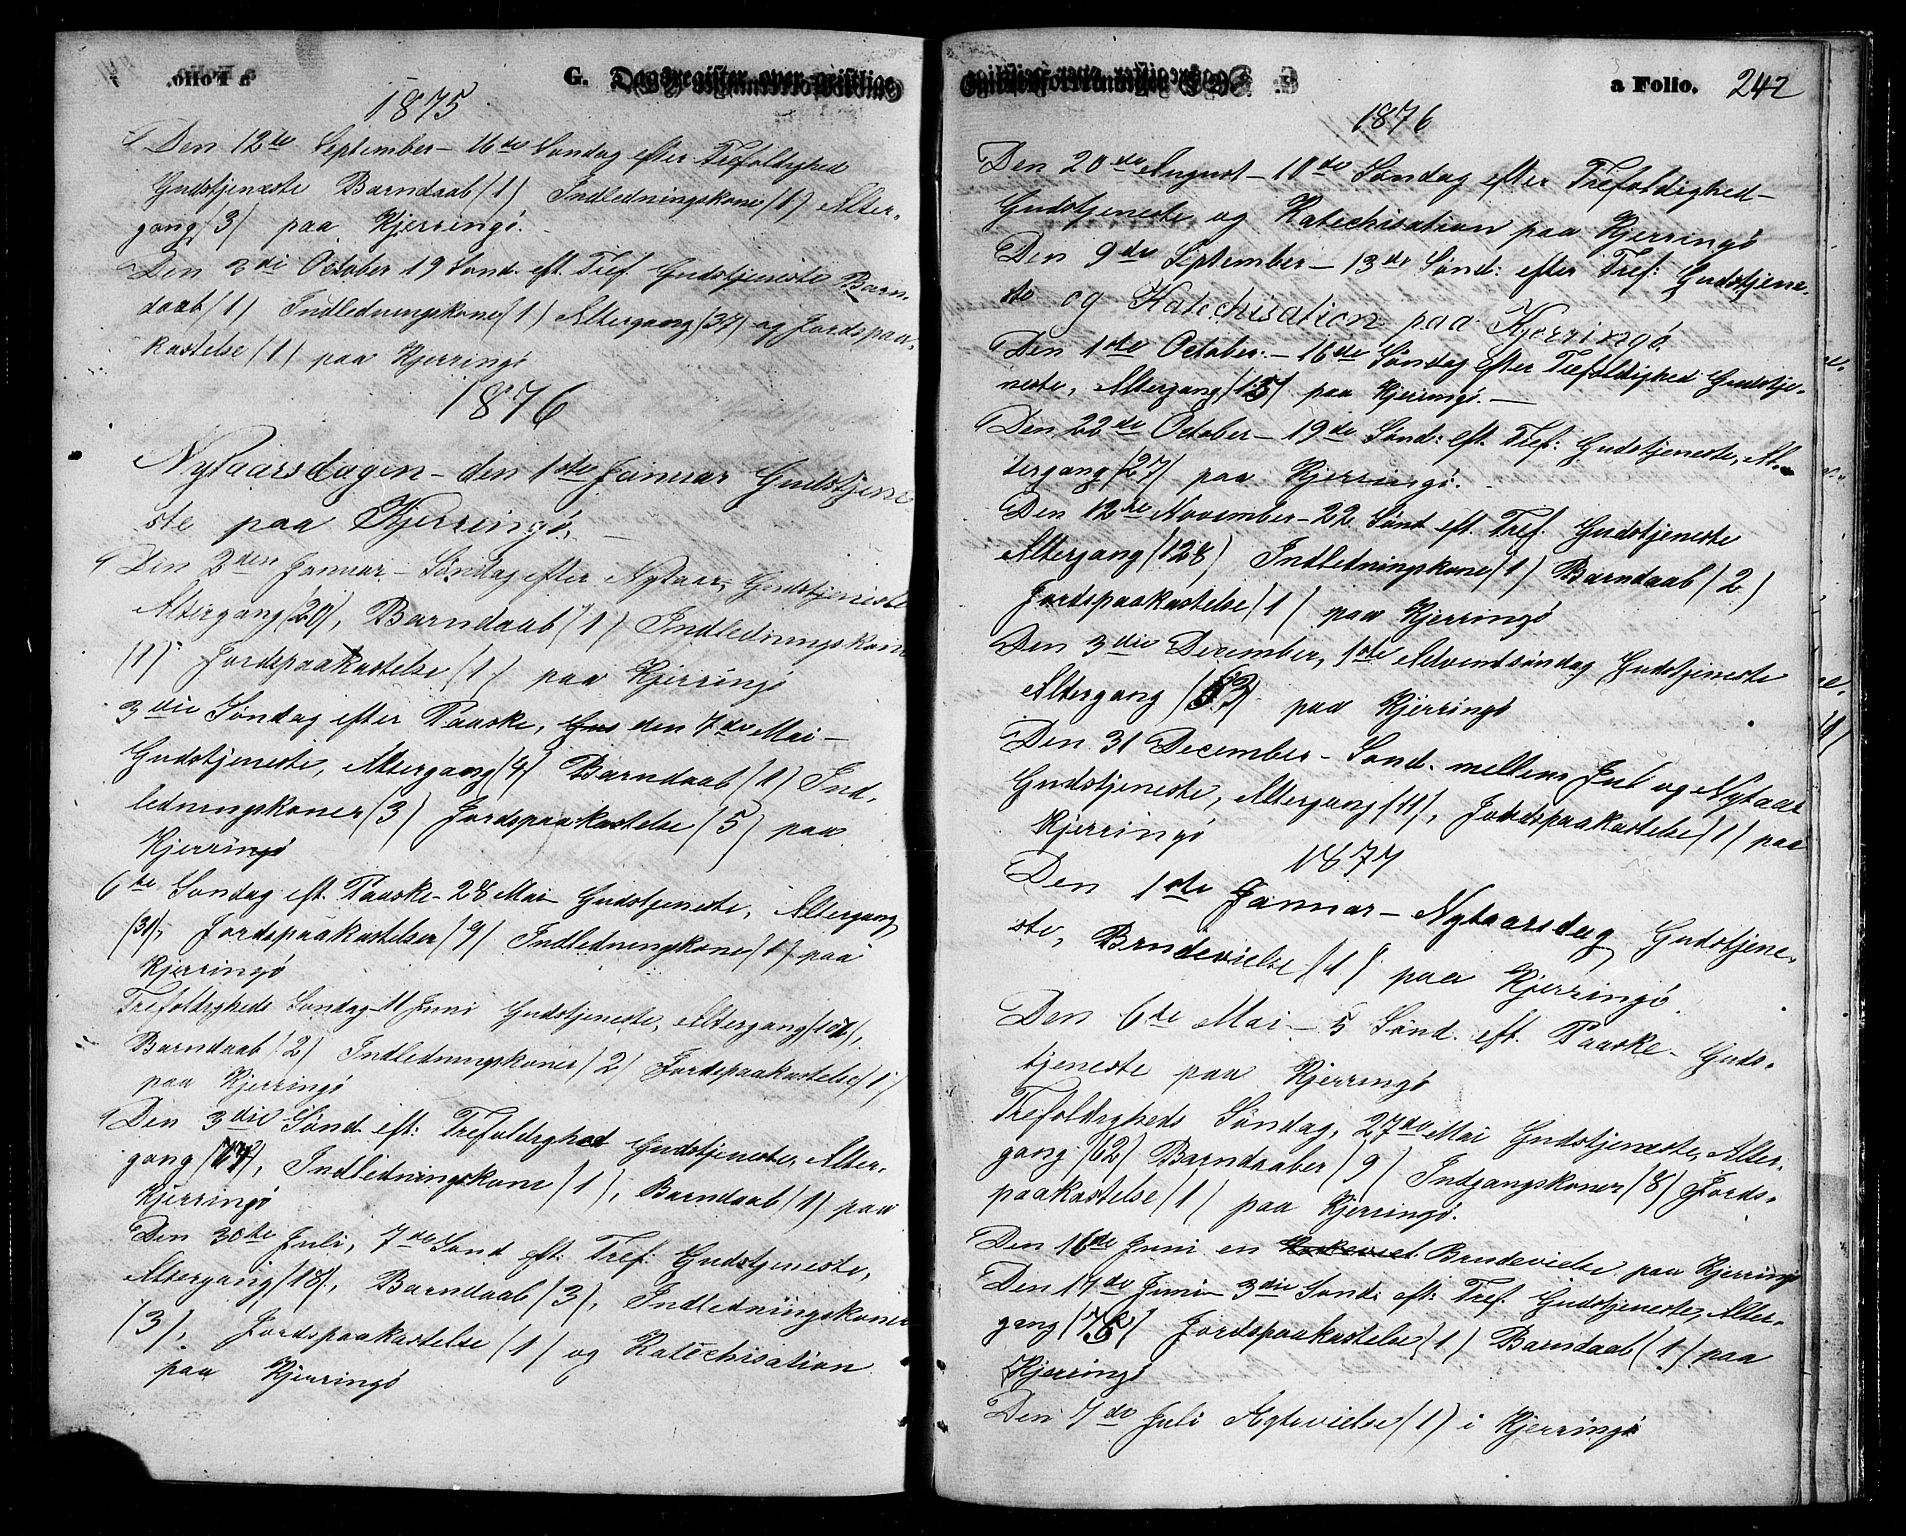 G. Dagsregister over geistlige
1875
Den 12te September – 16de Søndag efter Trefoldighed
Gudstjeneste Barndaab (1) Indledningskone (1) Alter-
gang (3) paa Kjerringø.
Den 3die October 19 Sønd. eft. Tref. Gudstjeneste Barn-
daab (1) Indledningskone (1) Altergang (37) og Jordspaa-
kastelse (1) paa Kjerringø
1876
Nytaarsdagen – den 1ste Januar Gudstjene
ste paa Kjerringø. –
Den 2den Januar – Søndag efter Nytaar, Gudstjeneste
Altergang (20), Barndaab (1) Indledningskone
(1) Jordspaakastelse (1) paa Kjerringø
3die Søndag efter Paaske, Gus den 7de Mai –
Gudstjeneste, Altergang (4) Barndaab (1) Ind-
ledningskoner (3) Jordspaakastelse (5) paa
Kjerringø
6te Søndag eft. Paaske – 28 Mai Gudstjeneste, Altergang
(30), Jordspaakastelser (9) Indledningskone (1) paa
Kjerringø
Trefoldigheds Søndag – 11 Juni Gudstjeneste, Altergang
Barndaab (2) Indledningskoner (2) Jordspaakastelse (1)
paa Kjerringø
Den 3die Sønd. eft: Trefoldighed Gudstjeneste, Alter-
gang Indledningskone (1), Barndaab (1) paa
Kjerringø
Den 30te Juli, 7de Sønd eft. Tref: Gudstjeneste,
Altergang (18), Barndaab (3), Indledningskoner
(3), Jordspaakastelse (1) og Katechisation
paa Kjerringø
a Folio. 242
1876
Den 20de August – 10de Søndag efter Trefoldighed –
Gudstjeneste og Katechisation paa Kjerringø
Den 9de September – 13de Sønd: efter Tref: Gudstjene-
ste og Katechisation paa Kjerringø.
Den 1ste October. – 16de Søndag efter Trefoldighed Gudstje-
neste, Altergang paa Kjerringø. –
Den 22de October – 19de Sønd: eft. Tref: Gudstjeneste, Al-
tergang (27) paa Kjerringø.
Den 12te November – 22 Sønd eft. Tref. Gudstjeneste
Altergang (128) Indledningskone (1) Barndaab (2)
Jordspaakastelse (1) paa Kjerringø
Den 3die December, 1ste Adventsøndag Gudstjeneste
Altergang paa Kjerringø
Den 31 December – Sønd. mellem Jul og Nytaar
Gudstjeneste, Altergang (11), Jordspaakastelse (1) paa
Kjerringø
1877
Den 1ste Januar – Nytaarsdag Gudstjene-
ste, Brudevielse (1) paa Kjerringø.
Den 6te Mai – 5 Sønd. eft. Paaske – Guds-
tjeneste paa Kjerringø
Trefoldigheds Søndag, 27de Mai Gudstjeneste, Alter-
gang (62) Barndaaber (9) Indgangskoner (8) Jords-
paakastelse (1) paa Kjerringø.
Den 16de Juni en Brudevielse paa Kjerringø
Den 17de Juni – 3die Sønd: eft: Tref. Gudstjeneste, Alter-
gang Jordspaakastelse (1) Barndaab (1) paa
Kjerringø
Den 7de Juli Ægtevielse (1) i Kjerringø